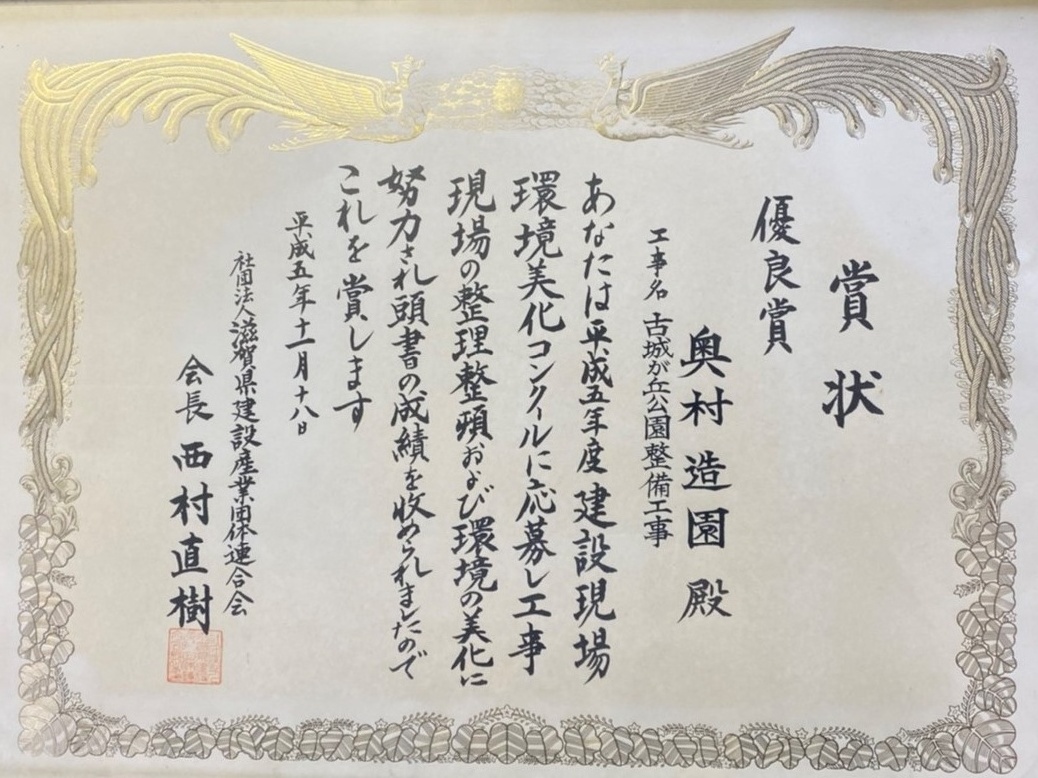 賞状
優良賞
奥村造園殿
工事名 古城が丘公園整備工事
あなたは平成五年度建設現場
環境美化コンクールに応募し工事
現場の整理整頓および環境の美化に
努力され頭書の成績を収められましたので
これを賞します
平成五年十一月十八日
社団法人滋賀県建設産業団体連合会
会長 西村直樹